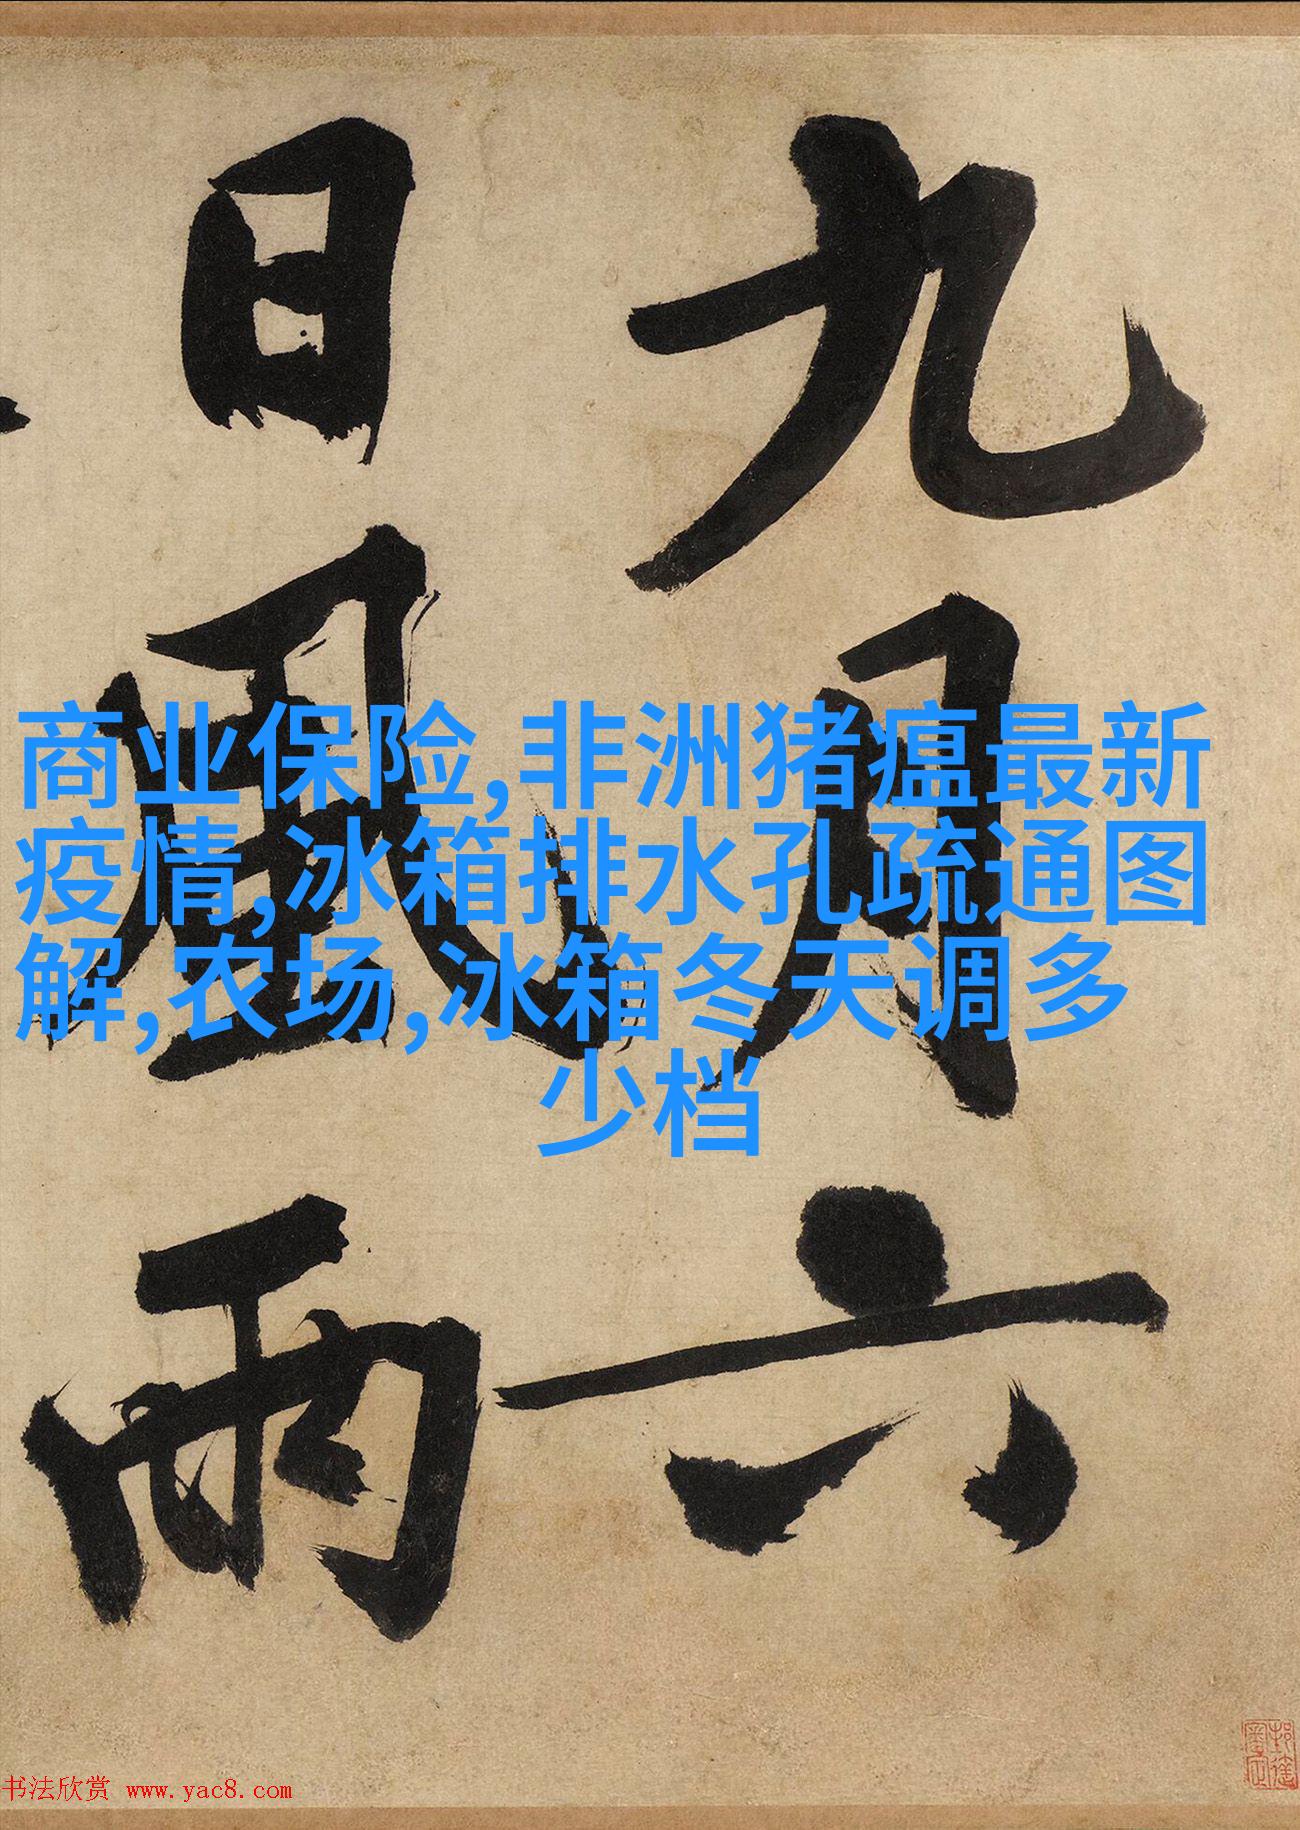 九月六
日風雨
商业保险,非洲猪瘟最新
疫情,冰箱排水孔疏通图
解,农场,冰箱冬天调多
少档
书法欣赏 www.yac8.com